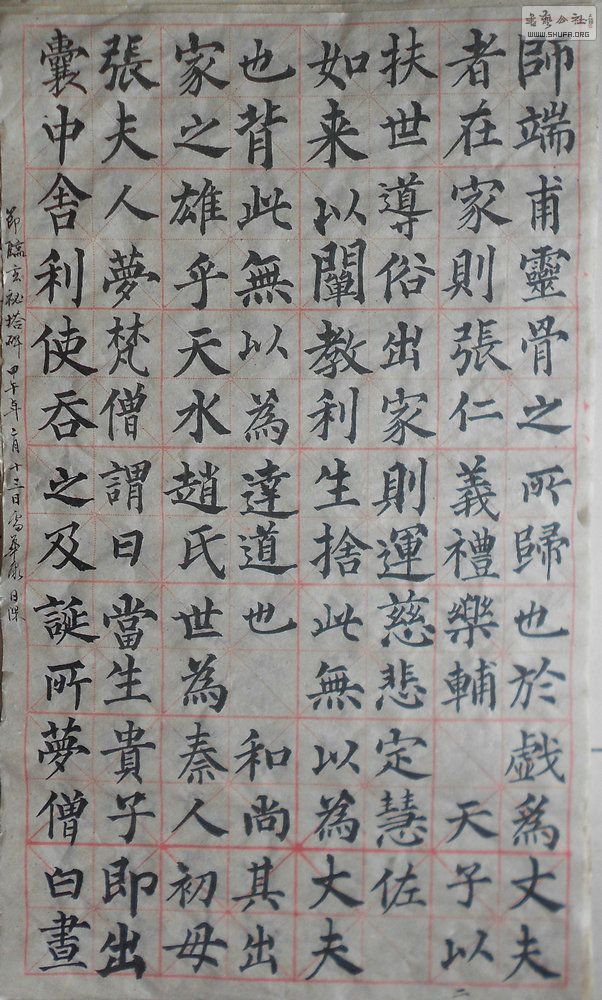 書藝公社
WWW.SHUFA.ORG
師端甫靈骨之所歸也於戲為丈夫
者在家則張仁義禮樂輔 天子以
扶世導俗出家則運慈悲定慧佐
如来以闡教利生捨此無以為大夫
也背此無以為達道也 和尚其出
家之雄乎天水趙氏世為秦人初母
張夫人夢梵僧謂曰當生貴子即出
囊中舍利使吞之及誕所夢僧白晝
節臨玄秘塔碑 甲午年二月十二日
二